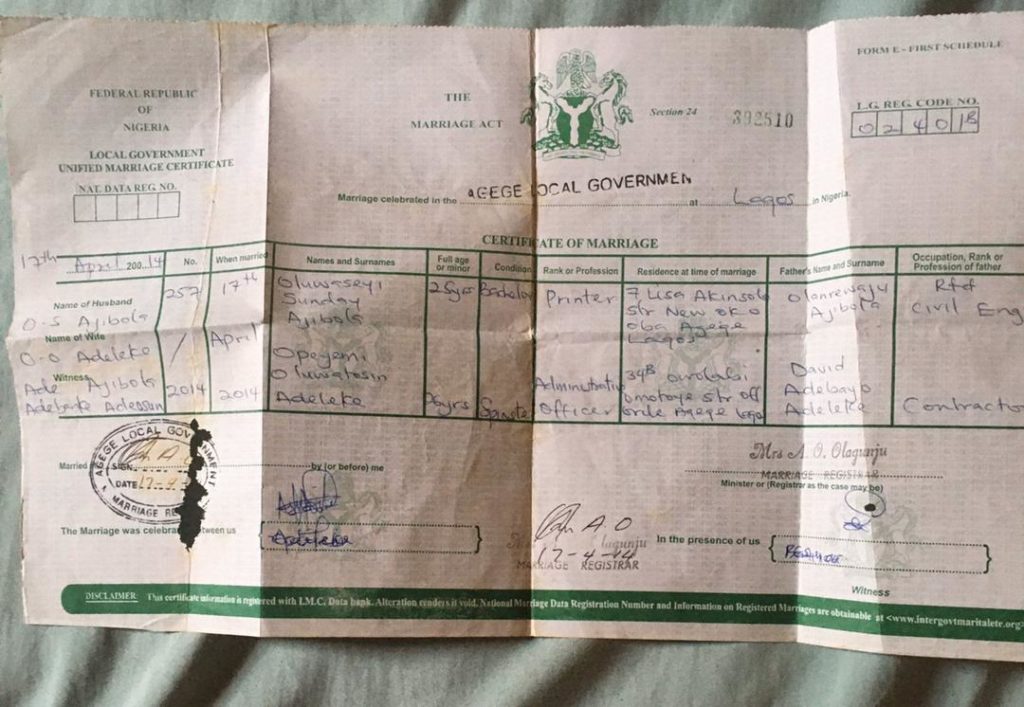 FORM E - FIRST SCHEDULE
FEDERAL REPUBLIC
OF
NIGERIA
THE
MARRIAGE ACT
Section 24
392510
L.G. REG. CODE NO.
024018
LOCAL GOVERNMENT
UNIFIED MARRIAGE CERTIFICATE
NAT. DATA REG. NO.
Marriage celebrated in the AGEGE LOCAL GOVERNMEN at Lagos in Nigeria.
CERTIFICATE OF MARRIAGE
17th April 200 14
No.
When married
Names and Surnames
Full age or minor
Condition
Rank or Profession
Residence at time of marriage
Father's Name and Surname
Occupation, Rank or Profession of father
Name of Husband
O-S Ajibola
Name of Wife
O-O Adeleke
Witness
Ade Ajibola
257
/
2014
17th
April
2014
Oluwaseyi
Sunday
Ajibola
25yrs
Bachelor
Printer
7 Lisa Akinsola
str New oko
oba Agege
Lagos
Olanrewaju
Ajibola
Rtd
Civil Eng
Opeyemi
Oluwatosin
Adeleke
Spinster
Administrative
Officer
34B owolabi
omotoye str off
orile Agege Lagos
David
Adebayo
Adeleke
Contractor
AGEGE LOCAL GOVERNMENT
SIGN
DATE 17-4
MARRIAGE RE
Married
by (or before) me
Mrs A. O. Olagunju
MARRIAGE REGISTRAR
Minister or (Registrar as the case may be)
The Marriage was celebrated between us
Adeleke
A.O
Olagunju
17-4-14
MARRIAGE REGISTRAR
In the presence of us
Witness
DISCLAIMER: This certificate information is registered with I.M.C. Data bank. Alteration renders it void. National Marriage Data Registration Number and Information on Registered Marriages are obtainable at <www.intergovtmaritalete.org>